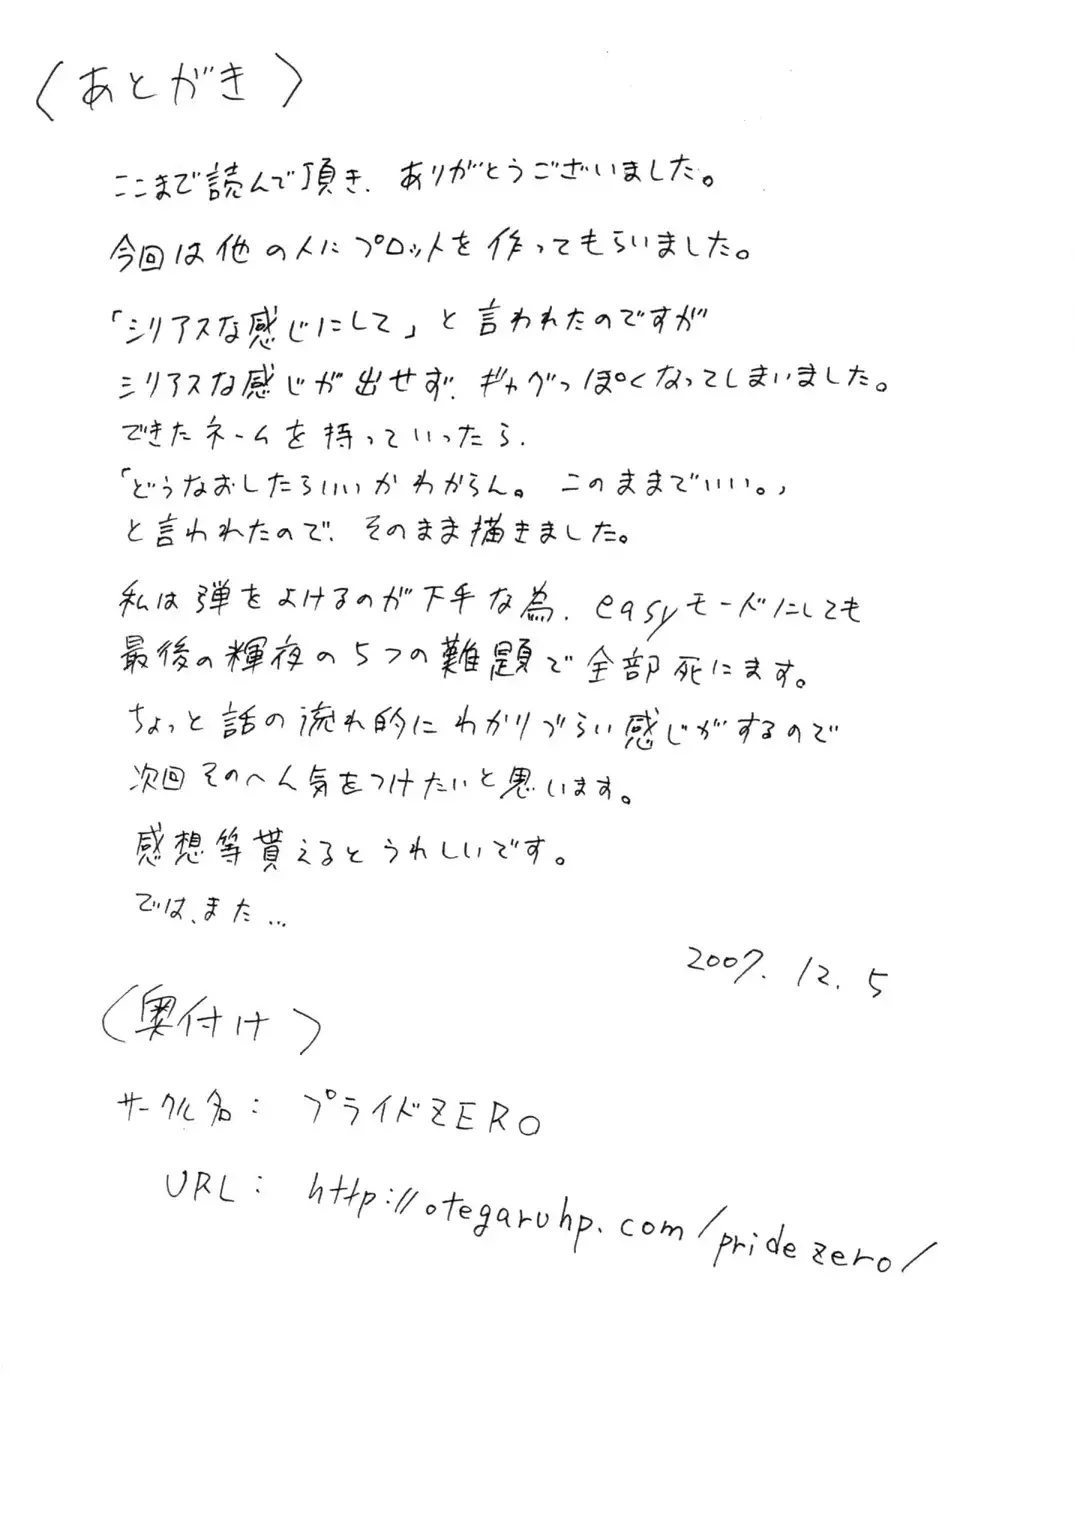 〈あとがき〉
ここまで読んで頂き、ありがとうございました。
今回は他の人にプロットを作ってもらいました。
「シリアスな感じにして」と言われたのですが
シリアスな感じが出せず、ギャグっぽくなってしまいました。
できたネームを持っていったら、
「どうなおしたらいいかわからん。このままでいい。」
と言われたので、そのまま描きました。
私は弾をよけるのが下手な為、easyモードにしても
最後の輝夜の5つの難題で全部死にます。
ちょっと話の流れ的にわかりづらい感じがするので
次回そのへん気をつけたいと思います。
感想等貰えるとうれしいです。
では、また…
2007.12.5
〈奥付け〉
サークル名: プライドZERO
URL: http://otegaruhp.com/pridezero/